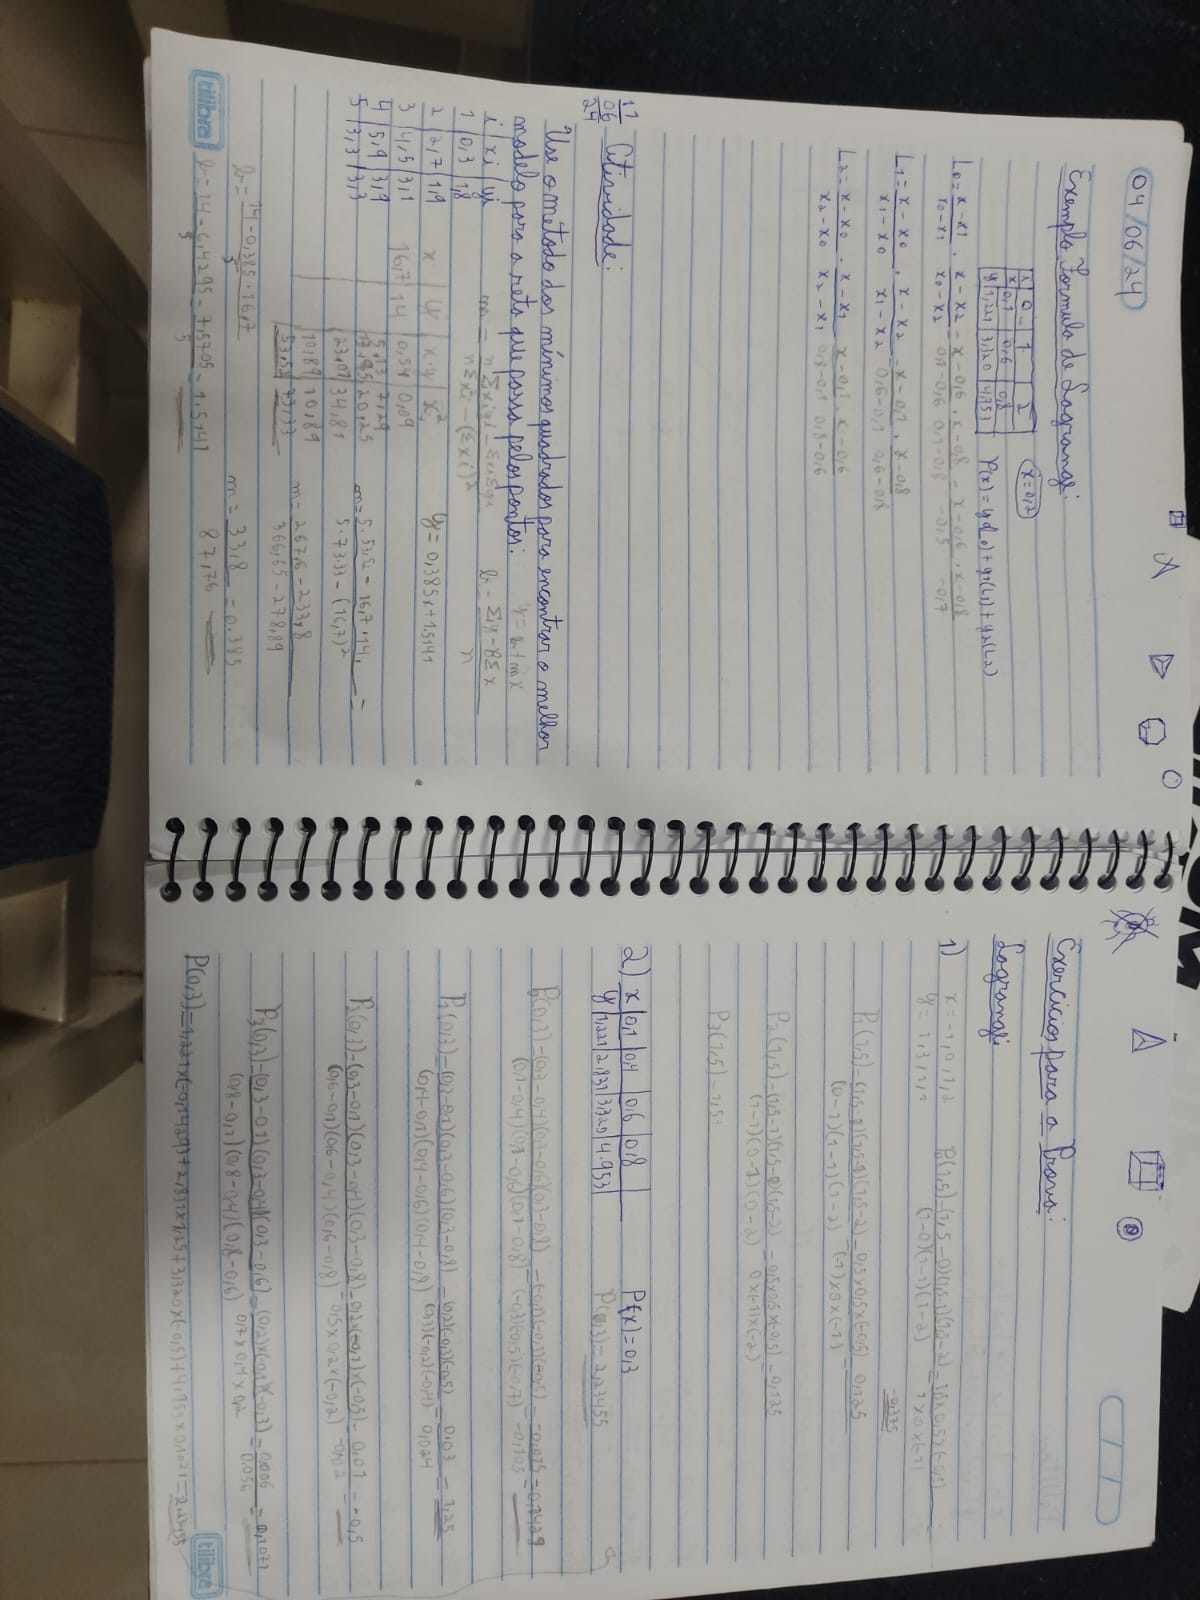 04/06/24
Exemplo Formula de Lagrange:
x 0 1 2
x 0,1 0,6 0,8
y 1,221 3,320 4,953
x=0,2
P(x) = y0(L0) + y1(L1) + y2(L2)
L0 = x-x1/x0-x1 . x-x2/x0-x2 = x-0,6/0,1-0,6 . x-0,8/0,1-0,8 = x-0,6/-0,5 . x-0,8/-0,7
L1 = x-x0/x1-x0 . x-x2/x1-x2 = x-0,1/0,6-0,1 . x-0,8/0,6-0,8
L2 = x-x0/x2-x0 . x-x1/x2-x1 = x-0,1/0,8-0,1 . x-0,6/0,8-0,6
17/06/24
Atividade:
Use o método dos mínimos quadrados para encontrar o melhor
modelo para a reta que passa pelos pontos:
y = b + mx
i xi yi
1 0,3 1,8
2 2,7 1,9
3 4,5 3,1
4 5,9 3,9
5 3,3 3,3
m = n Σxiyi - ΣxiΣyi / nΣxi² - (Σxi)²
x y x.y x²
16,7 14 0,54 0,09
5,13 7,29
13,95 20,25
23,01 34,81
10,89 10,89
53,52 73,33
y = 0,385x + 1.5141
m = 5.53,52 - 16,7.14, / 5.73.33 - (16,7)² =
m = 267,6 - 233,8 / 366,65 - 278,89
m = 33,8 / 87,76 = 0.385
b = 14 - 0,385.16,7 / 5
b = 14 - 6,4295 / 5 = 7,5705 / 5 = 1.5141
tilibra
Exercícios para a Prova:
Lagrange:
1) x = -1,0,1,2
y = 1,3,1,1
P0(1,5) = (1,5-0)(1,5-1)(1,5-2) / (1-0)(1-1)(1-2) = 1,5x0,5x(-0,5) / 1x0x(-1)
-0,375
P1(1,5) = (1,5-1)(1,5-1)(1,5-2) / (0-1)(1-1)(1-2) = 0,5x0,5x(-0,5) / (-1)x0x(-1) = 0,125
P2(1,5) = (1,5-1)(1,5-0)(1,5-2) / (1-1)(0-1)(0-2) = 0,5x0,5x(-0,5) / 0x(-1)x(-2) = -0,125
P3(1,5) = 1,5
2) x 0,1 0,4 0,6 0,8
y 1,221 2,831 3,320 4.953
P(x) = 0,3
P(0,3) = 2,23455
P0(0,3) = (0,3-0,4)(0,3-0,6)(0,3-0,8) / (0,1-0,4)(0,1-0,6)(0,1-0,8) = (-0,1)(-0,3)(-0,5) / (-0,3)(-0,5)(-0,7) = -0,015 / -0,105 = 0,1429
P1(0,3) = (0,3-0,1)(0,3-0,6)(0,3-0,8) / (0,4-0,1)(0,4-0,6)(0,4-0,8) = (0,2)(-0,3)(-0,5) / (0,3)(-0,2)(-0,4) = 0,03 / 0,024 = 1,25
P2(0,3) = (0,3-0,1)(0,3-0,4)(0,3-0,8) / (0,6-0,1)(0,6-0,4)(0,6-0,8) = 0,2x(-0,1)x(-0,5) / 0,5x0,2x(-0,2) = 0,01 / -0,02 = -0,5
P3(0,3) = (0,3-0,1)(0,3-0,4)(0,3-0,6) / (0,8-0,1)(0,8-0,4)(0,8-0,6) = (0,2)x(-0,1)x(-0,3) / 0,7x0,4x0,2 = 0,006 / 0.056 = 0,1071
P(0,3) = 1,221x(-0,1429)+2,831x1,25+3,320x(-0,5)+4,953x0,1071 = 2.23455
tilibra